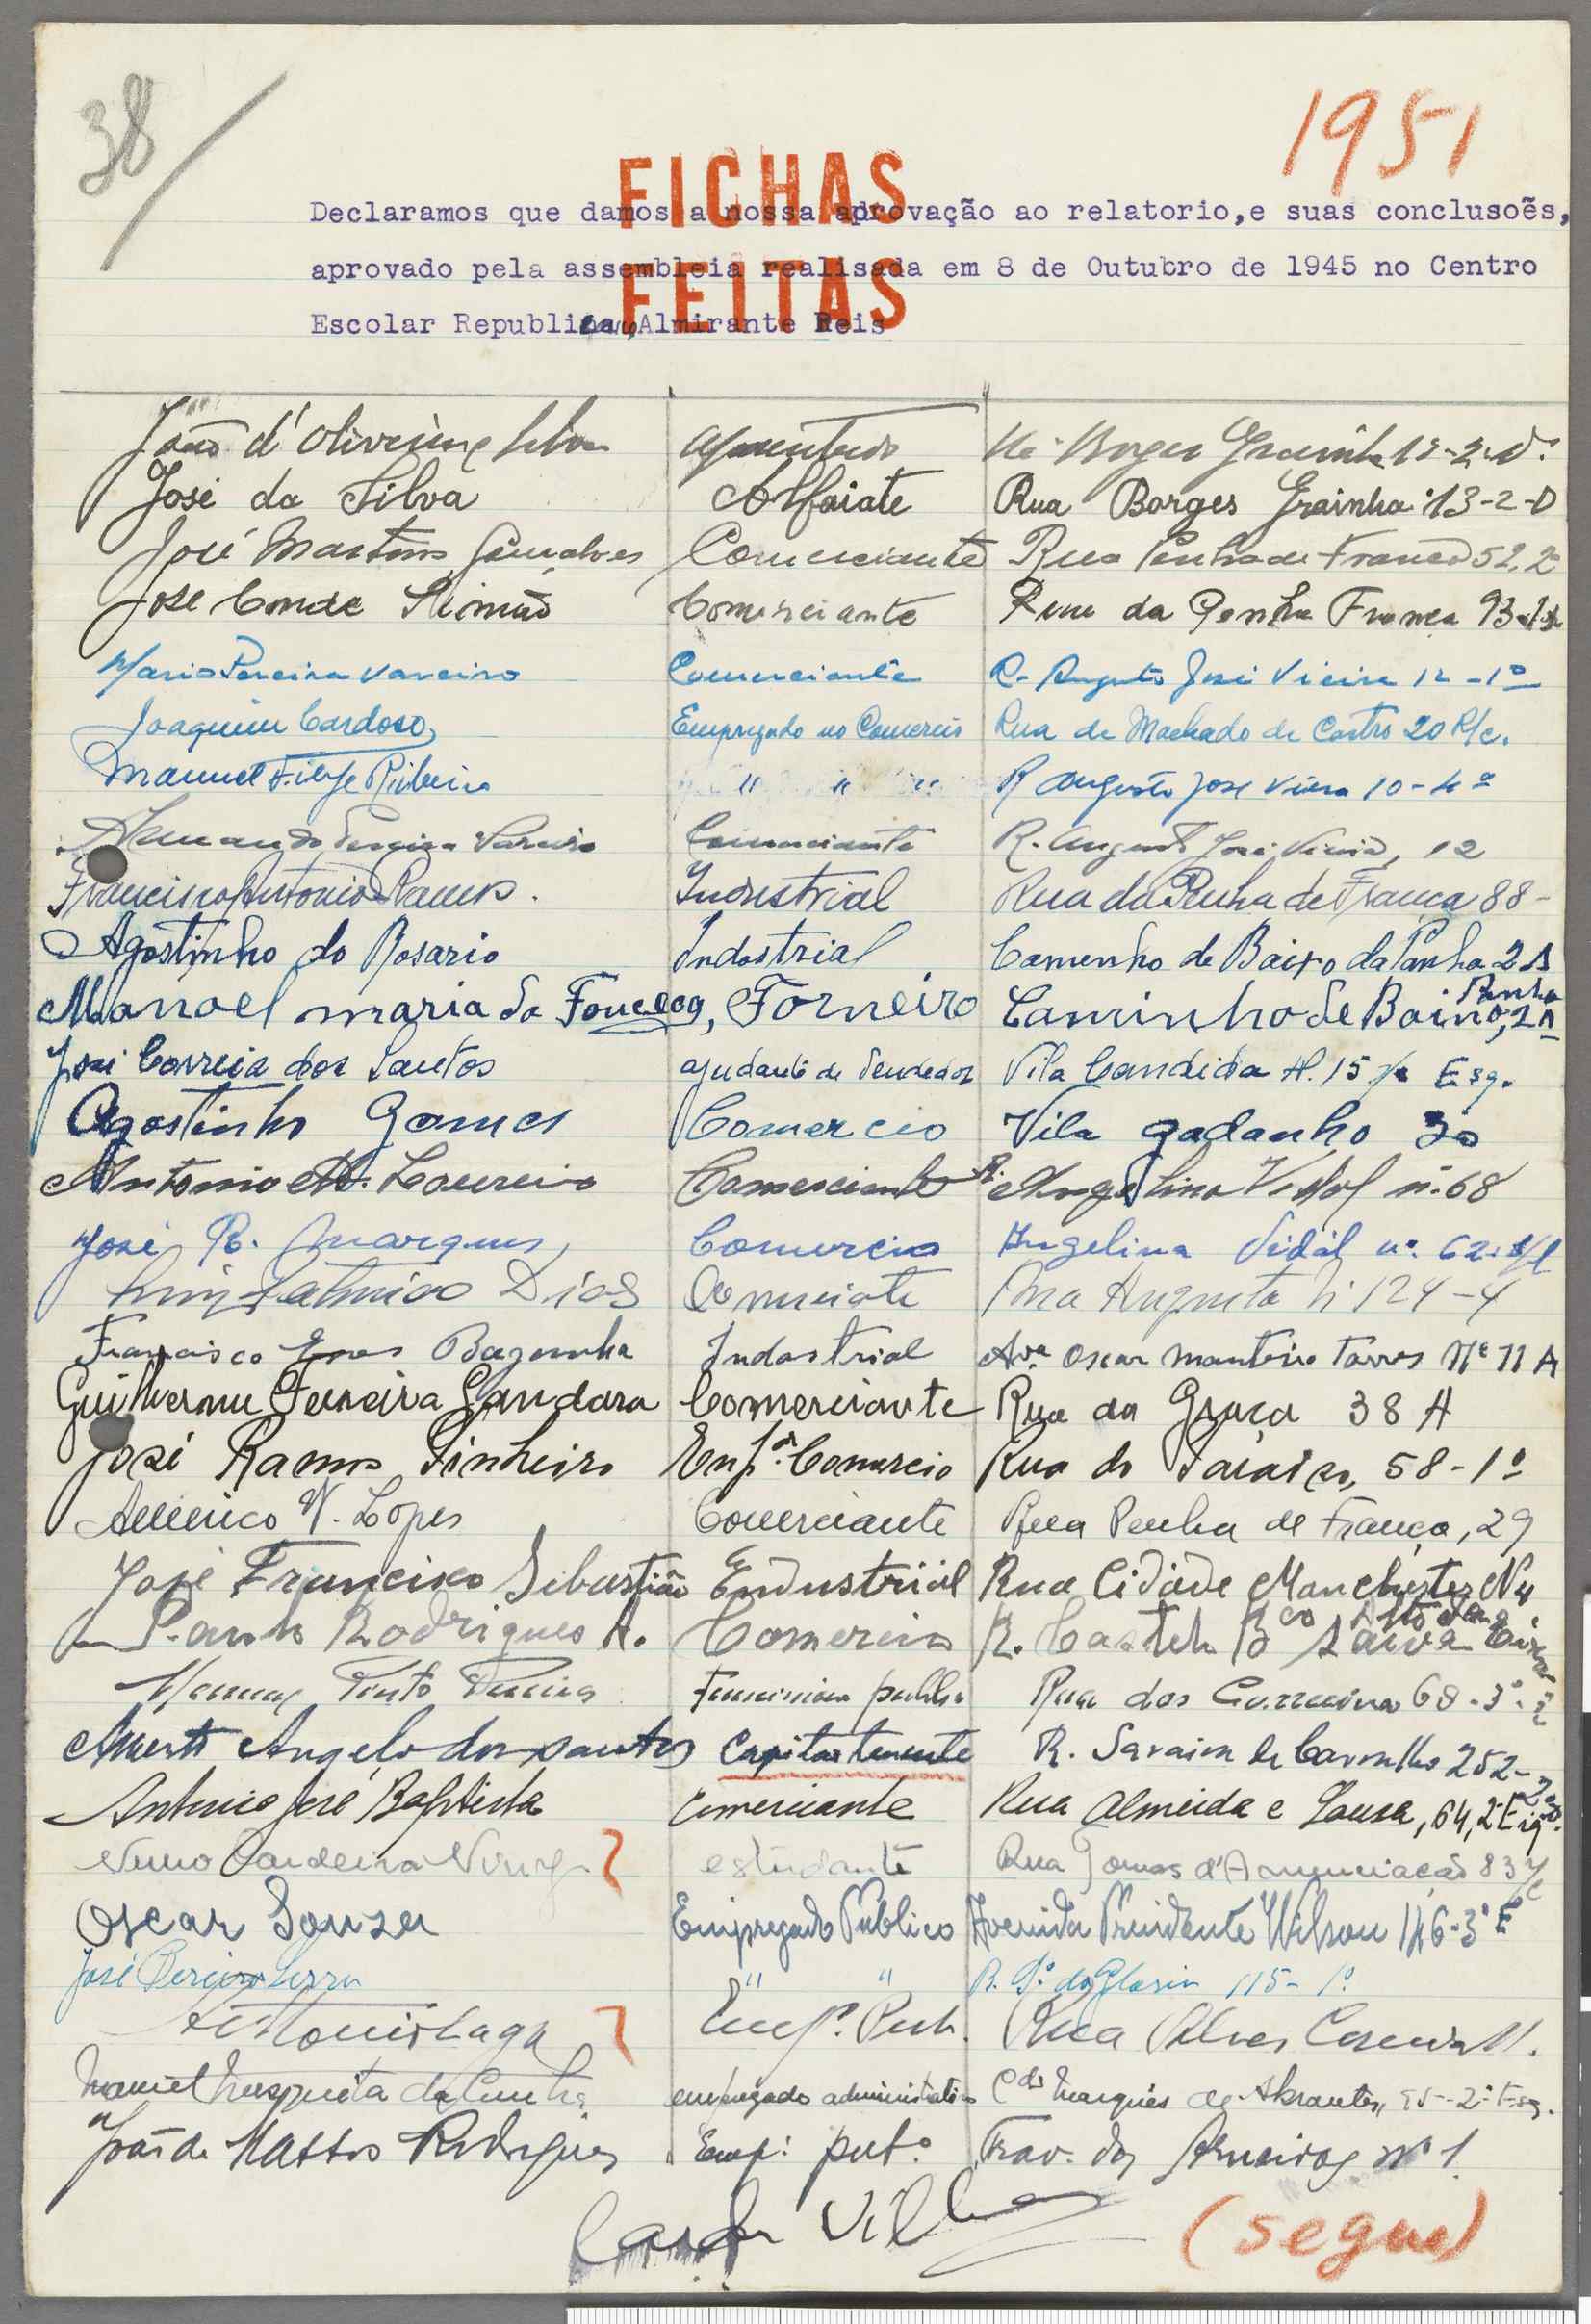 38
1951
FICHAS
FEITAS
Declaramos que damos a nossa aprovação ao relatorio,e suas conclusoẽs,
aprovado pela assembleia realisada em 8 de Outubro de 1945 no Centro
Escolar Republicano Almirante Reis
João d'Oliveira e Silva
José da Silva Alfaiate Rua Borges Grainha 13-2-D
José Martins Gonçalves Comerciante Rua Penha de França 52, 2º
José Conde Simão Comerciante Rua da Penha França 93-1º
Mario Pereira Vareiro Comerciante R. Augusto José Vieira 12-1º
Joaquim Cardoso Empregado no Comercio Rua de Machado de Castro 20 R/c.
Manuel Filipe Ribeiro " " " R Augusto José Vieira 10-4º
Pereira Vareiro Comerciante R. Augusto José Vieira, 12
Francisco Antonio Ramos. Industrial Rua da Penha de França 88-
Agostinho do Rosario Industrial Camenho de Baixo da Panha 2A
Manoel maria da Fonceca, Forneiro Caminho de Baixo, Penha 2A
José Correia dos Santos ajudante de Vendedor Vila Candida H. 15 Esq.
Agostinho Gomes Comercio Vila gadanho 30
Antonio M. Loureiro Comerciante R. Angelina Vidal nº 68
José R. Marques Comercio Angelina Vidal nº 62
Luiz Dias Comerciante Rua Augusta Nº 124-4
Francisco Bagonha Industrial Avª Oscar Monteiro Torres Nº 11 A
Guilherme Ferreira Gandara Comerciante Rua da Graça 38 A
José Ramos Pinheiro Empº Comercio Rua do Paraiso, 58-1º
Americo N. Lopes Comerciante Rua Penha de França, 29
José Francisco Sebastião Endustriial Rua Cidade Manchester Nº 4
Rodrigues A. Comercio R. Castelo Bco Saraiva
Pinto Rua dos Correeiros 68-3º
Alberto Angelo dos Santos Capitão tenente R. Saraiva de Carvalho 252-2º
Antonio José Baptista Comerciante Rua Almeida e Sousa, 64, 2º Esqº.
Nuno estudante Rua Tomas d'Anunciação 83 r/c
Oscar Souza Empregado Publico Avenida Presidente Wilson 146-3º E
José Pereira Serra " " 115-1º
Empº. Pub. Rua Alves
Manuel da Cunha empregado administrativo Marquês de Abrantes,
João de Mattos Rodrigues Empº pubº Trav. das nº 1
(segue)